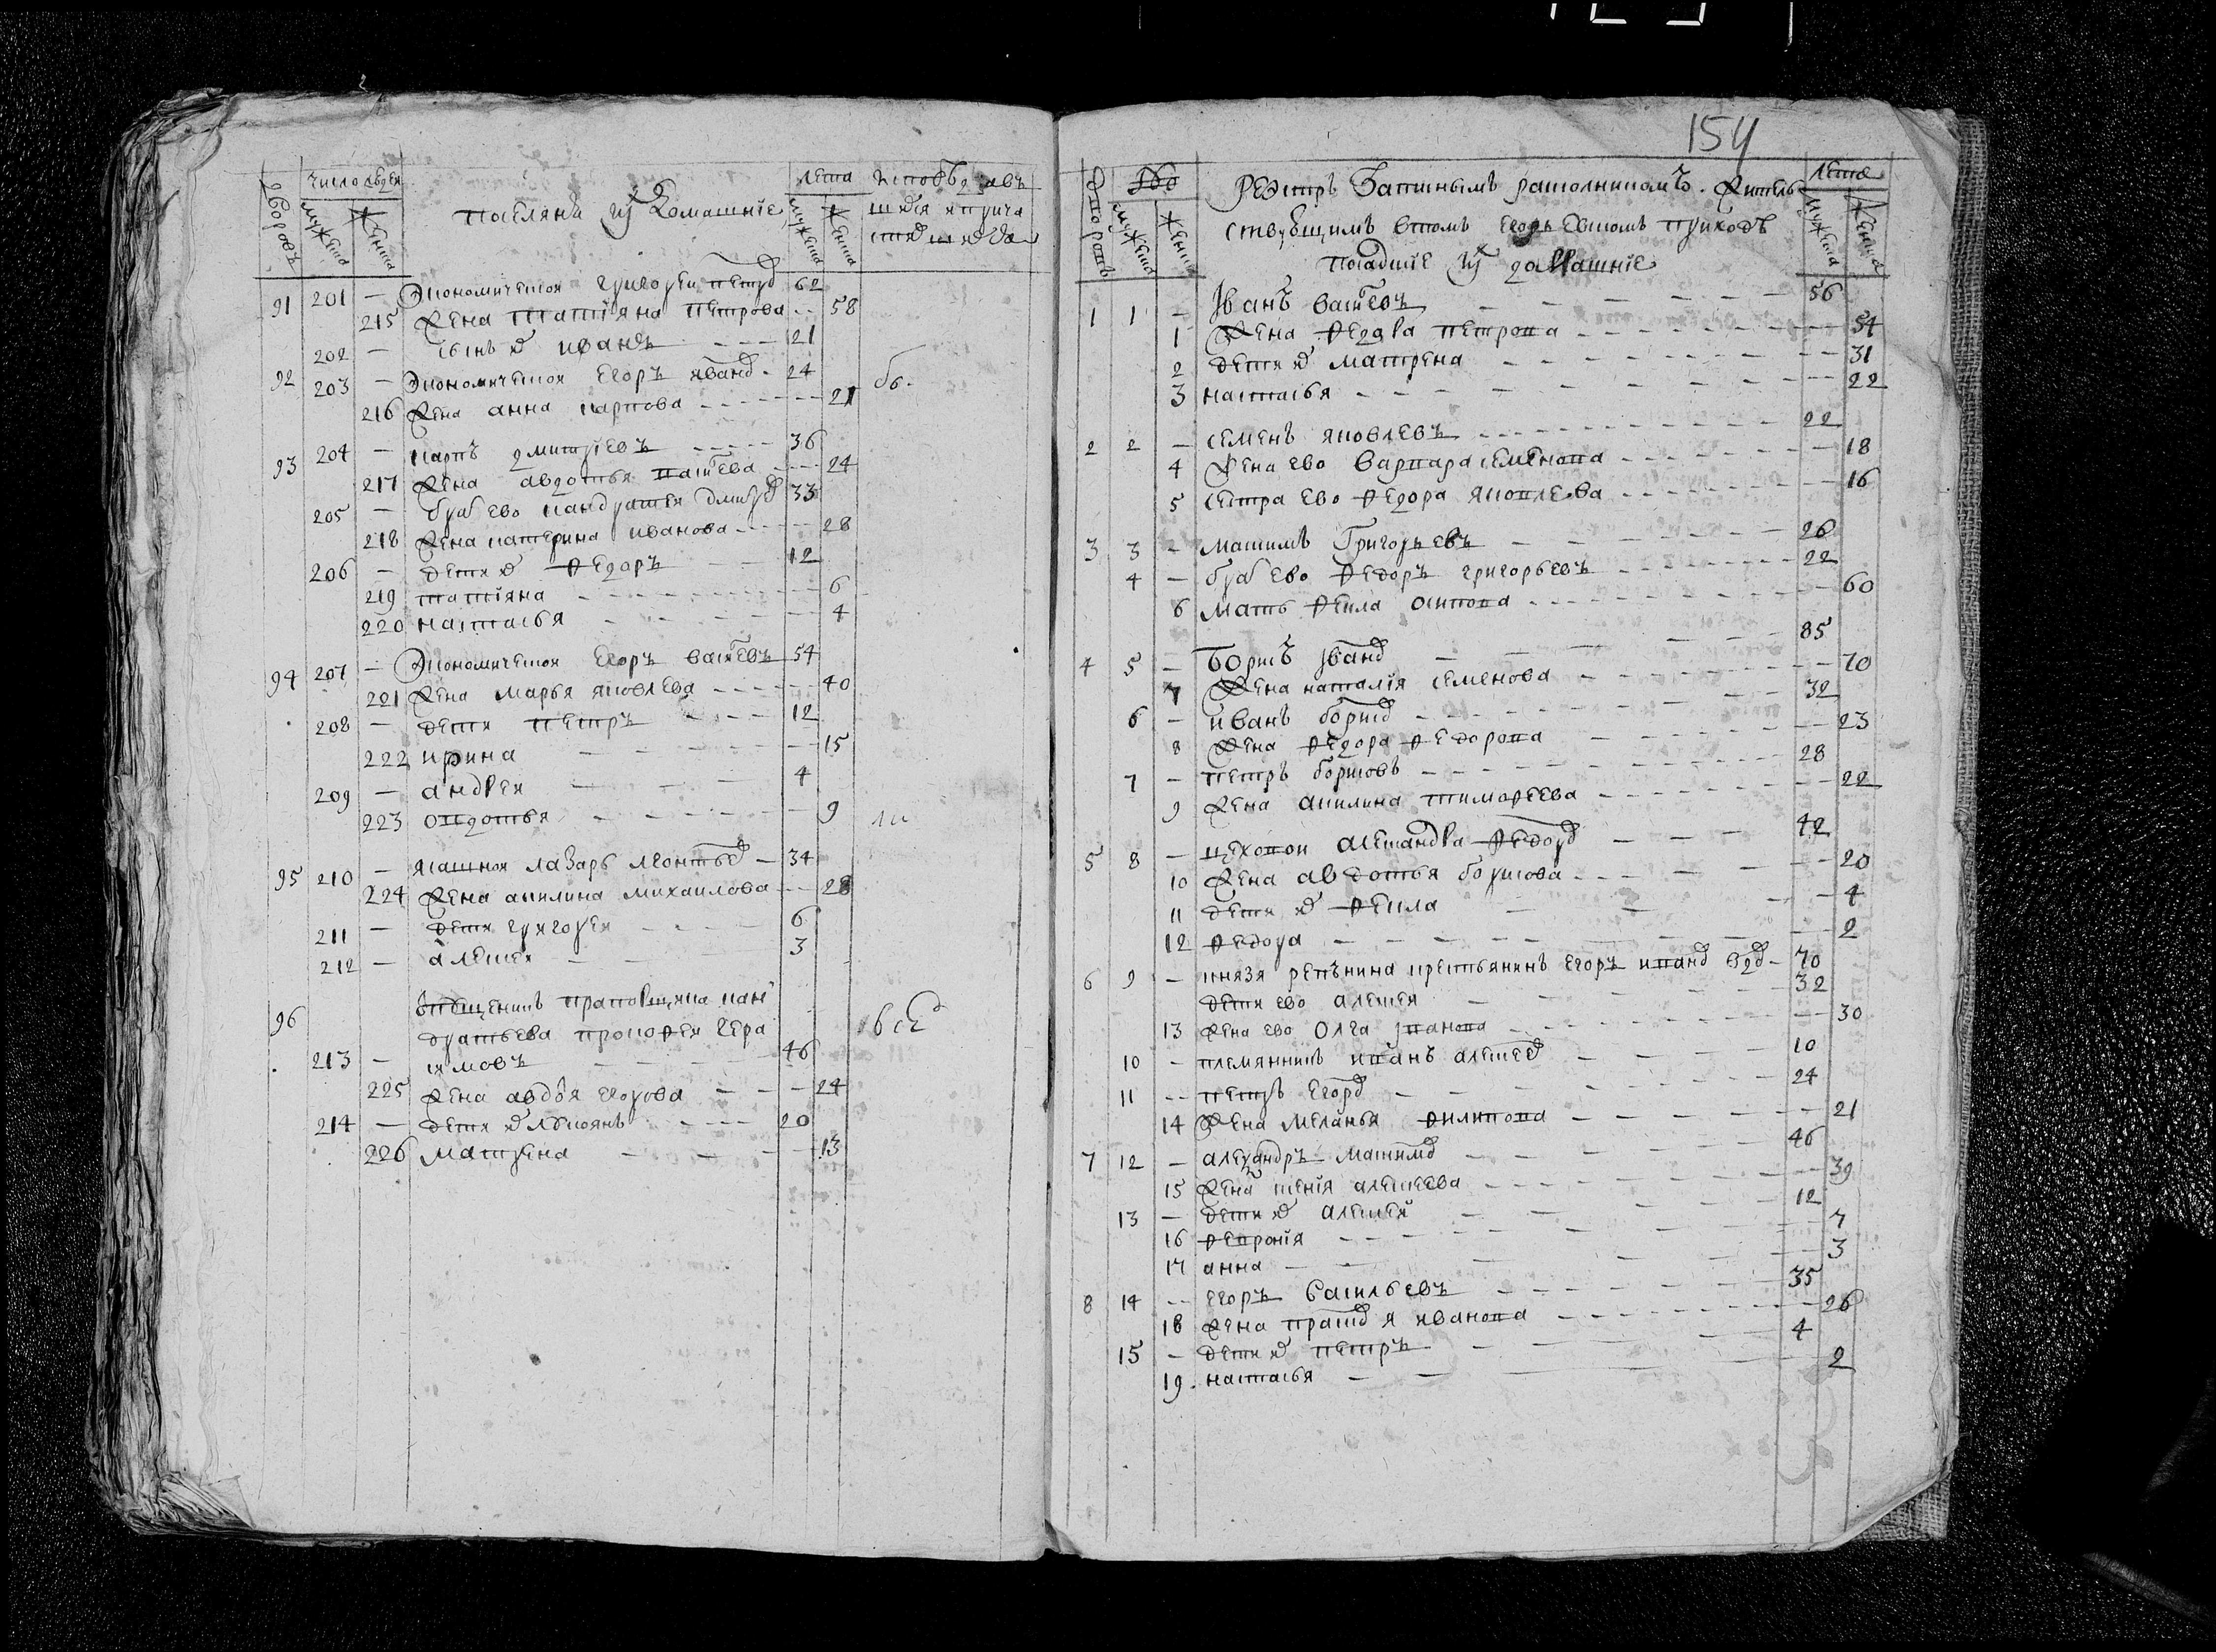 число людеи
дворовъ
мужеска
женска
поселяня и домашние
лета
мужеска
женска
исповедавъ
шияся и прича
стившияся
91 201 — Экономическои григореи петро 62
215 жена татияна петрова -- 58
202 — сынъ их иванъ --- 21
92 203 — Экономическои егоръ ивано 24
216 жена анна карпова ---- 21
93 204 — карпъ дмитриевъ ---- 36
217 жена авдотья ---- 24
205 — братъ ево кандратея дмитр 33
218 жена катерина иванова ---- 28
206 — дети их федоръ -- 12
219 татияна ---- 6
220 настасья ---- 4
94 207 — Экономическои егоръ васильевъ 54
221 жена марья яковлева ---- 40
208 — дети петръ ---- 12
222 ирина ---- 15
209 — андреи ---- 4
223 овдотья ---- 9
95 210 — ясашнои лазарь леонтье — 34
224 жена акилина михаилова -- 28
211 — дети григореи ---- 6
212 — алексеи — 3
96 отпущеникъ прапорщика кан
дратьева прокофеи гера
213 — симовъ — 46
225 жена авдотья егорова --- 24
214 — дети их лукиянъ ---- 20
226 матрена ---- 13
154
Реэстръ запиннымъ расколникомъ. жител
ствующимъ втомъ егорьевскомъ приходъ
посадские и домашние
лета
дворовъ
мужеска
женска
мужеска
женска
1 1 — Иванъ васильевъ — 56
1 жена федора петрова ---- 54
2 дети их матрена ---- 31
3 настасья ---- 22
2 2 — семенъ яковлевъ ---- 22
4 жена ево варвара семенова ---- 18
5 сестра ево федора яковлева ---- 16
3 3 — максимъ григорьевъ ---- 26
4 — братъ ево федоръ григорьевъ ---- 22
6 мать фекла осипова ---- 60
4 5 — борисъ ивано — 85
7 жена наталия семенова ---- 70
6 — иванъ борисо ---- 32
8 жена федора федорова ---- 23
7 — петръ борисовъ ---- 28
9 жена акилина тимофеева ---- 22
5 8 — цеховои александра федоро — 42
10 жена авдотья борисова ---- 20
11 дети их фекла — 4
12 федора ---- 2
6 9 — князя репънина крестьянинъ егоръ ивано вдо 70
дети ево алексеи — 32
13 жена ево олга иванова ---- 30
10 — племянникъ иванъ алексее — 10
11 — петръ егоро — 24
14 жена меланья филипова ---- 21
7 12 — александръ максимо — 46
15 жена ксения алексеева ---- 39
13 — дети их алексеи — 12
16 феврония ---- 7
17 анна — 3
8 14 — егоръ васильевъ ---- 35
18 жена прасковья иванова ---- 26
15 — дети их петръ — 4
19 настасья — 2